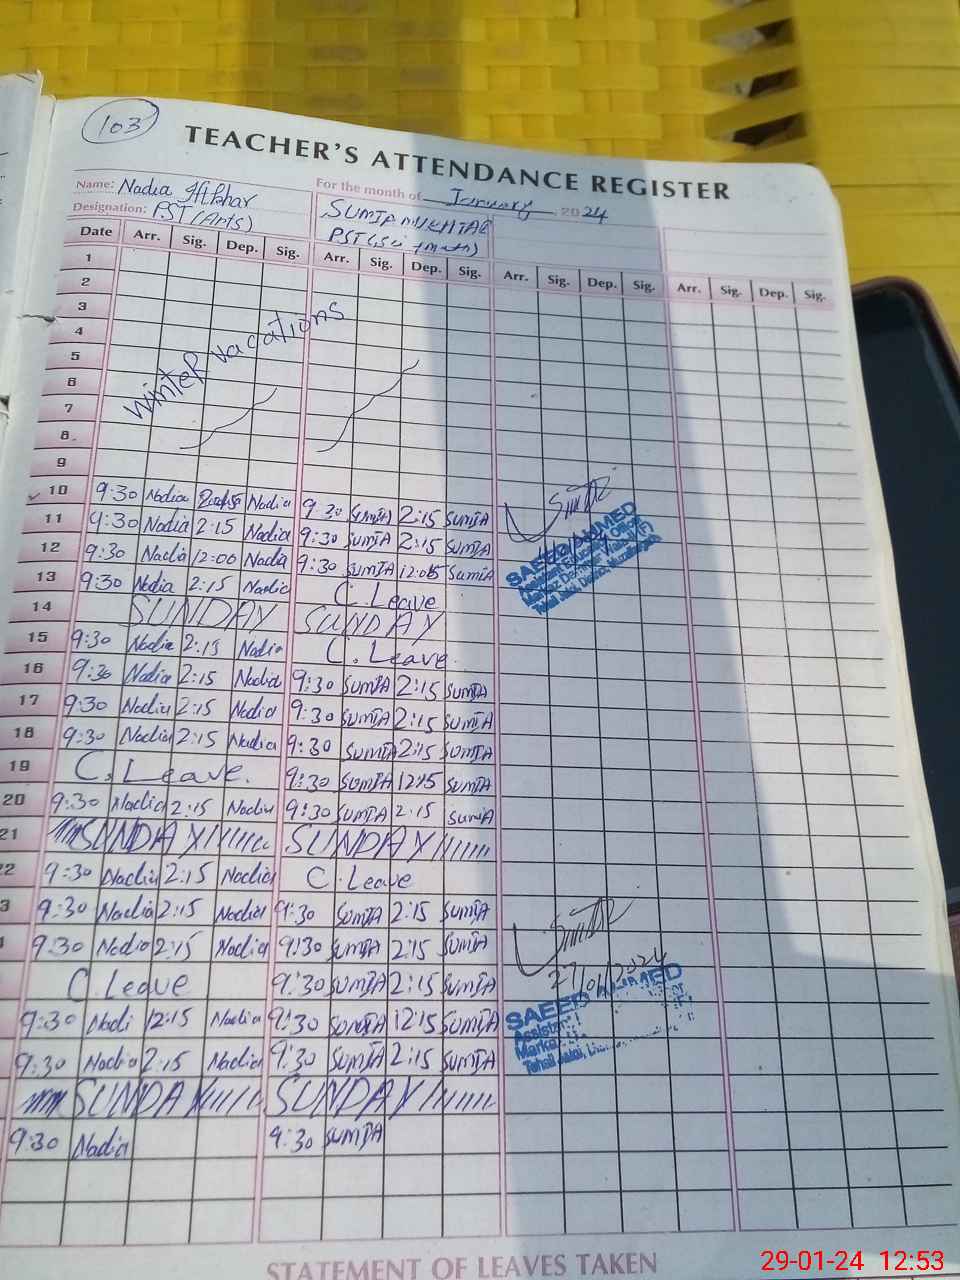 103
TEACHER'S ATTENDANCE REGISTER
Name: Nadia Iftkhar For the month of January, 2024
Designation: PST (Arts) SUMIA MUKHTAR
PST (Sci + math)
Date Arr. Sig. Dep. Sig. Arr. Sig. Dep. Sig. Arr. Sig. Dep. Sig. Arr. Sig. Dep. Sig.
1
2
3
4
5
6
7
8
9
Winter Vacations
10 9:30 Nadia Nadia 9 30 SUMIA 2:15 SUMIA
11 9:30 Nadia 2:15 Nadia 9:30 SUMIA 2:15 SUMIA
12 9:30 Nadia 12:00 Nadia 9:30 SUMIA SUMIA
13 9:30 Nadia 2:15 Nadia C. Leave
14 SUNDAY SUNDAY
15 9:30 Nadia 2:15 Nadia C. Leave
16 9:30 Nadia 2:15 Nadia 9:30 SUMIA 2:15 SUMIA
17 9:30 Nadia 2:15 Nadia 9:30 SUMIA 2:15 SUMIA
18 9:30 Nadia 2:15 Nadia 9:30 SUMIA 2:15 SUMIA
19 C. Leave. 9:30 SUMIA SUMIA
20 9:30 Nadia 2:15 Nadia 9:30 SUMIA 2:15 SUMIA
21 SUNDAY SUNDAY
22 9:30 Nadia 2:15 Nadia C. Leave
3 9:30 Nadia 2:15 Nadia 9:30 SUMIA 2:15 SUMIA
9:30 Nadia 2:15 Nadia 9:30 SUMIA 2:15 SUMIA
C. Leave 9:30 SUMIA 2:15 SUMIA
9:30 Nadi 12:15 Nadia 9:30 SUMIA 12:15 SUMIA
9:30 Nadia 2:15 Nadia 9:30 SUMIA 2:15 SUMIA
SUNDAY SUNDAY
9:30 Nadia 9:30 SUMIA
SAEED AHMED
Assistant Education Officer
27/01/2024
SAEED AHMED
Assistant
Marka
STATEMENT OF LEAVES TAKEN
29-01-24 12:53